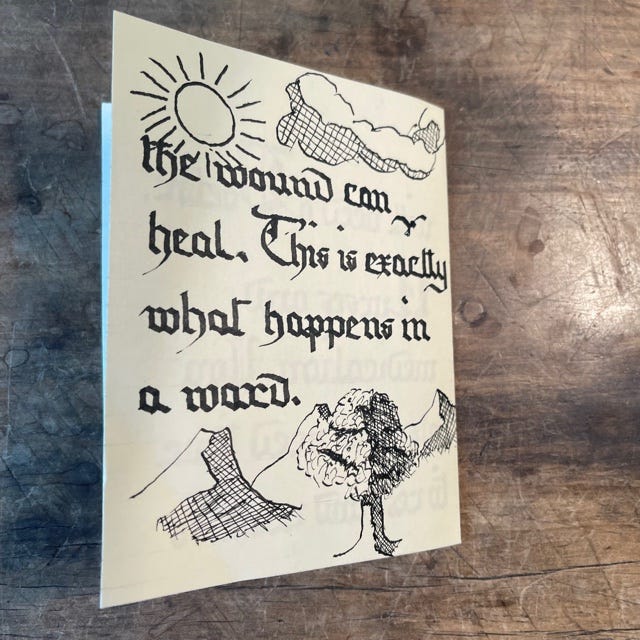 the wound can
heal. This is exactly
what happens in
a ward.